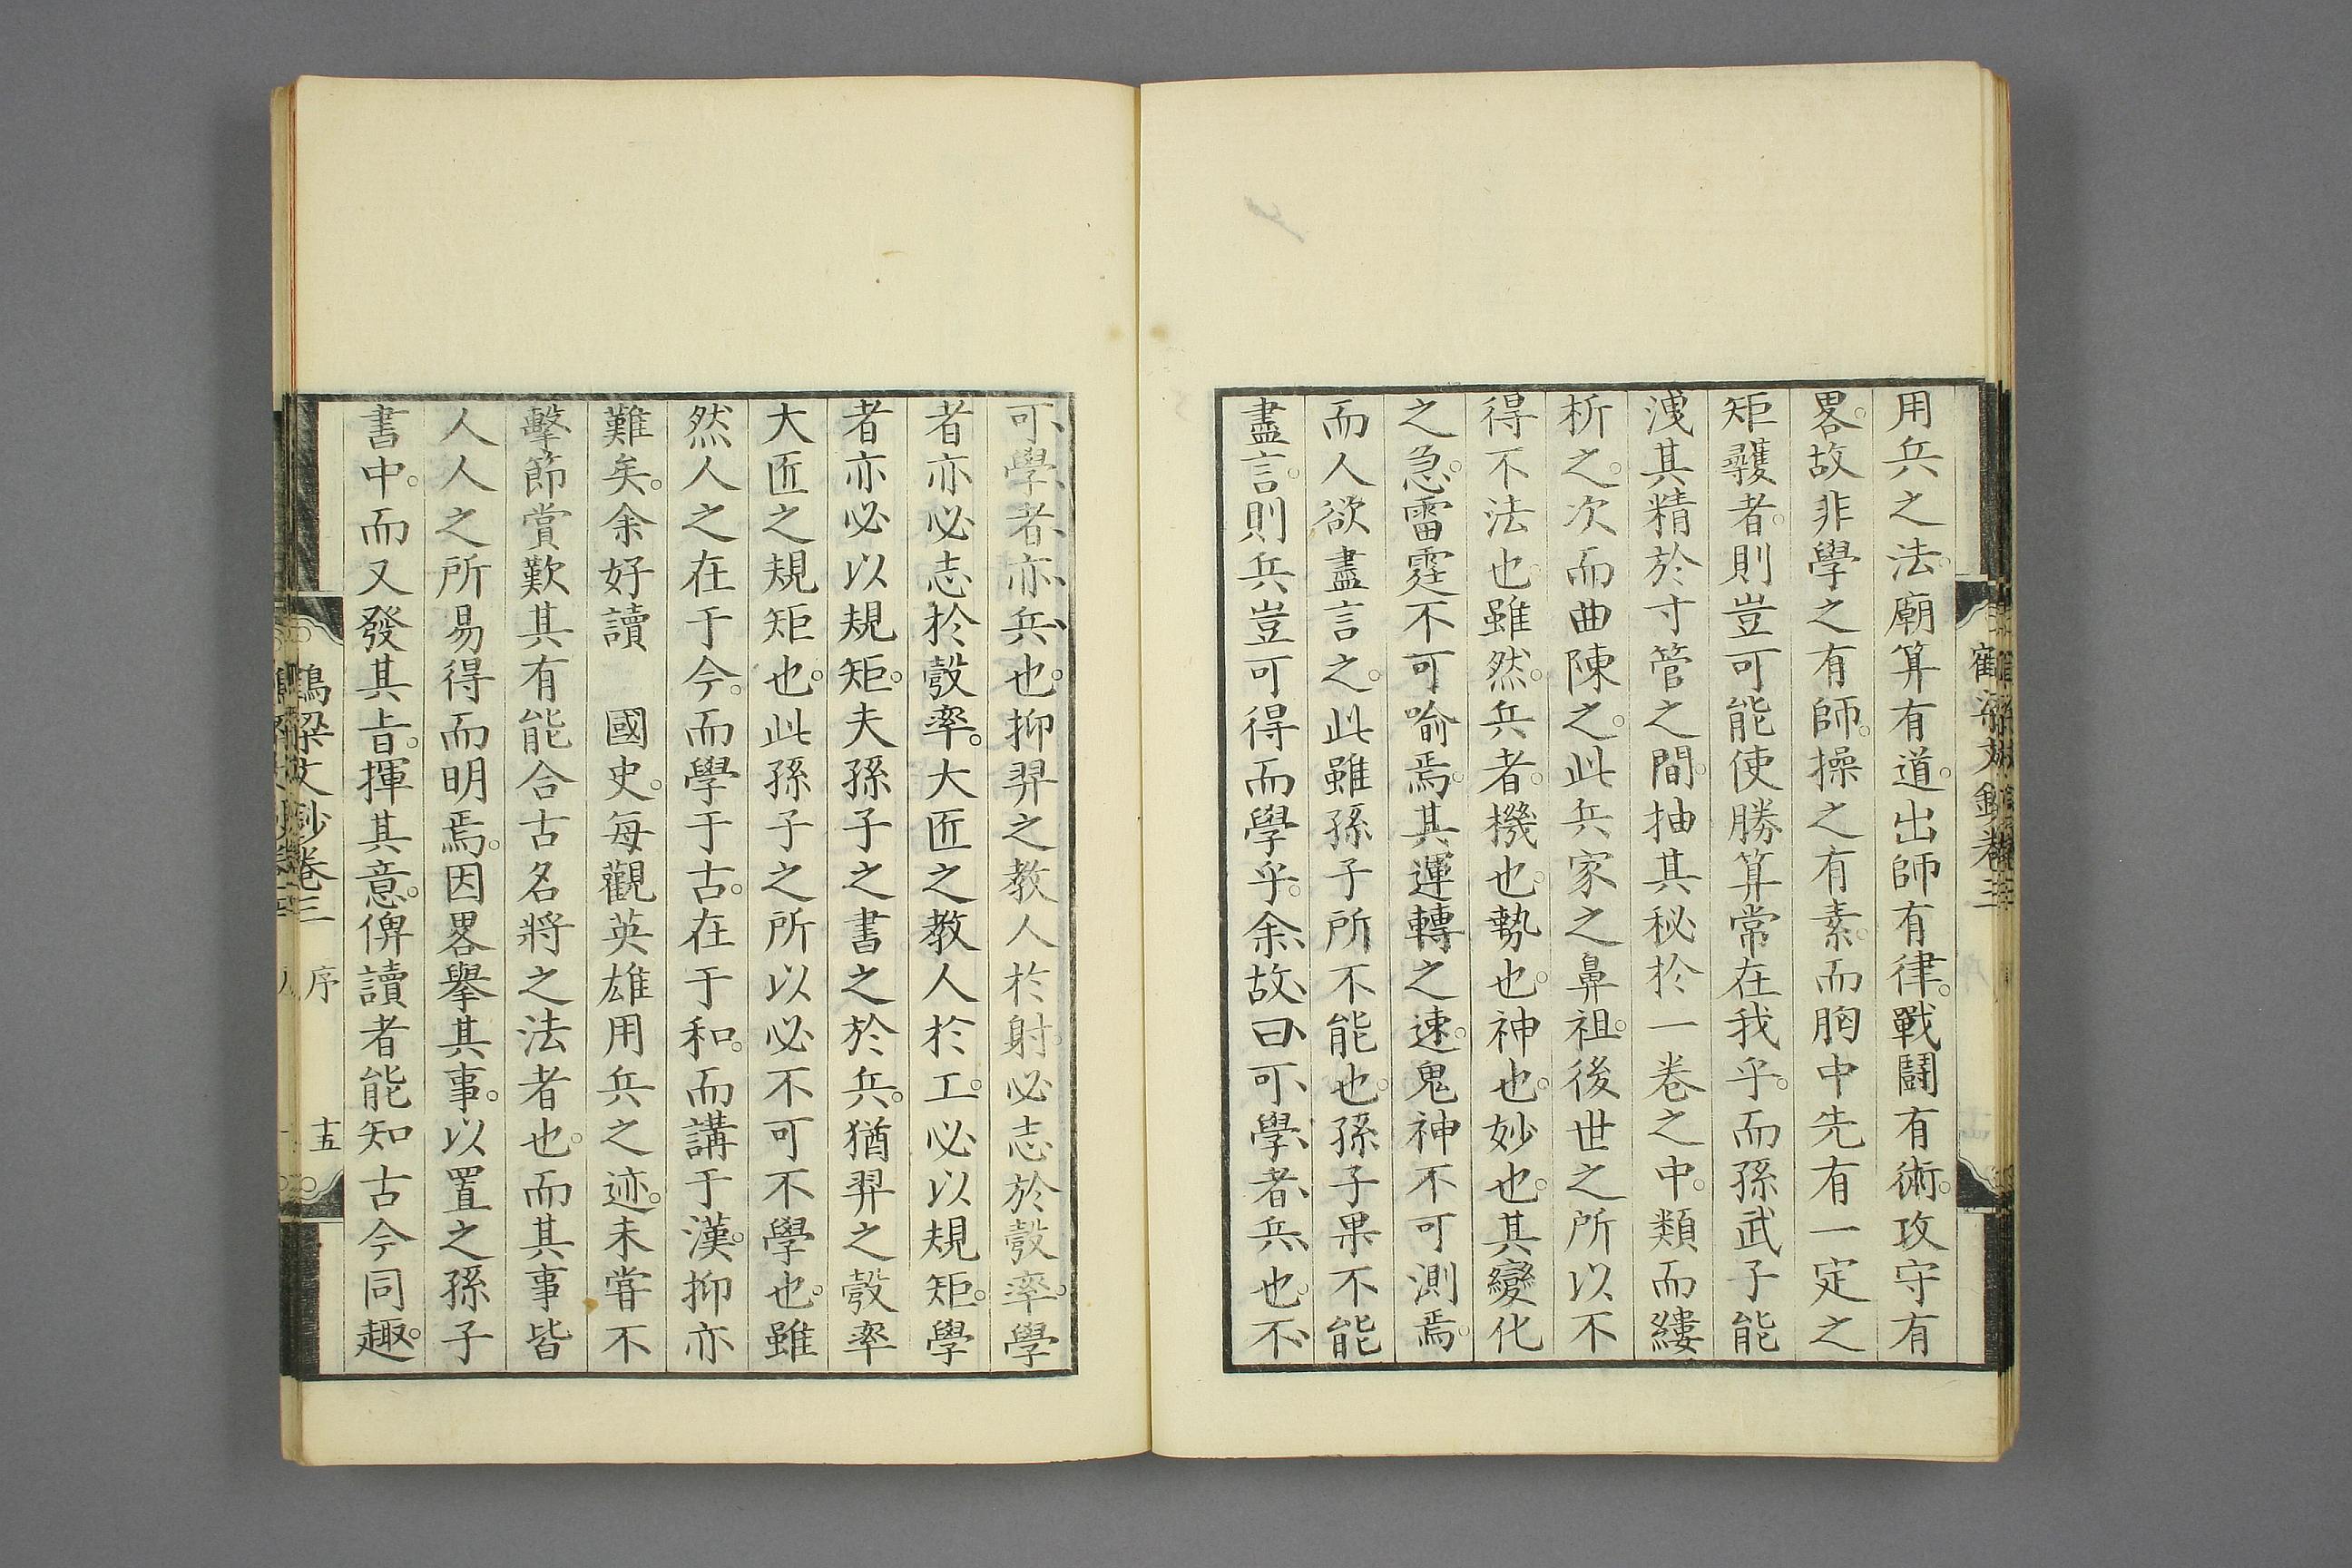 用兵之法。廟算有道。出師有律。戰鬪有術。攻守有
畧。故非學之有師。操之有素。而胸中先有一定之
矩矱者。則豈可能使勝算常在我乎。而孫武子能
洩其精於寸管之間。抽其秘於一卷之中。類而縷
析之。次而曲陳之。此兵家之鼻祖。後世之所以不
得不法也。雖然。兵者。機也。勢也。神也。妙也。其變化
之急。雷霆不可喻焉。其運轉之速。鬼神不可測焉。
而人欲盡言之。此雖孫子所不能也。孫子果不能
盡言。則兵豈可得而學乎。余故曰可學者兵也。不
可學者亦兵也。抑羿之教人於射。必志於彀率。學
者亦必志於彀率。大匠之教人於工。必以規矩。學
者亦必以規矩。夫孫子之書之於兵。猶羿之彀率
大匠之規矩也。此孫子之所以必不可不學也。雖
然人之在于今。而學于古。在于和。而講于漢。抑亦
難矣。余好讀　國史。每觀英雄用兵之迹。未嘗不
擊節賞歎其有能合古名將之法者也。而其事皆
人人之所易得而明焉。因畧舉其事。以置之孫子
書中。而又發其旨。揮其意。俾讀者能知古今同趣。
鶴梁文鈔卷三　序　十五